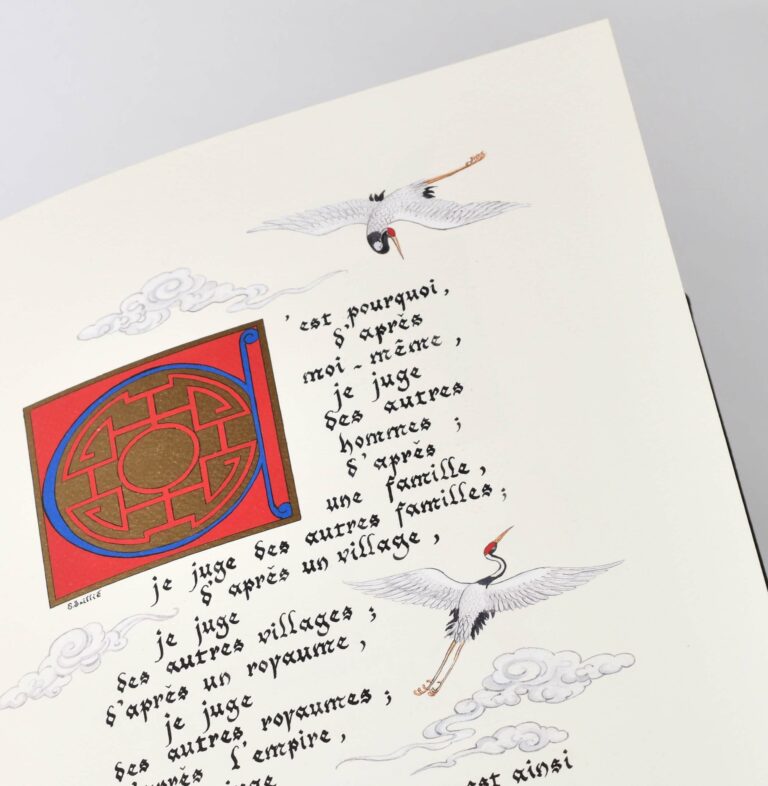 C'est pourquoi,
d'après
moi-même,
je juge
des autres
hommes ;
d'après
une famille,
je juge des autres familles ;
d'après un village,
je juge
des autres villages ;
d'après un royaume,
je juge
des autres royaumes ;
d'après l'empire,
juge
est ainsi